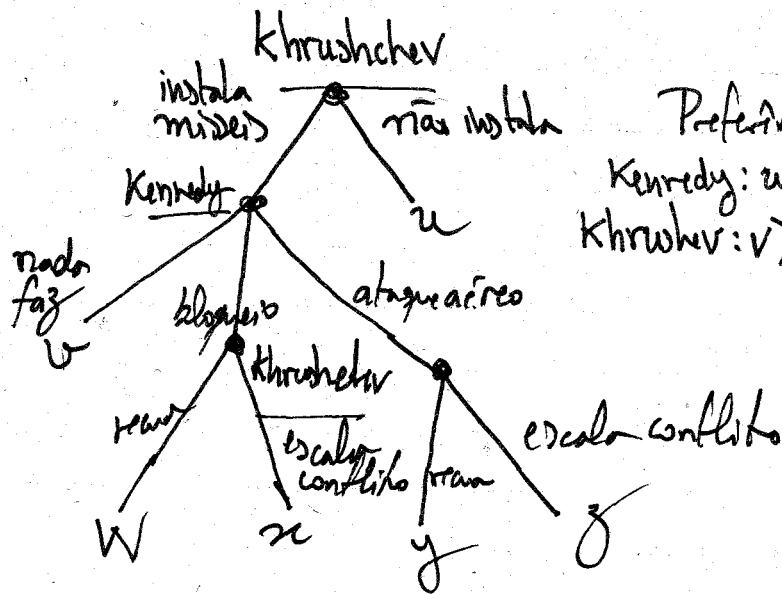 Khrushchev
instala
mísseis
não instala
Kennedy
Preferên
Kennedy: u
Khrushev: v>
u
nada
faz
v
bloqueio
ataque aéreo
Khrushchev
recua
escala
conflito
recua
escala conflito
W
x
y
z